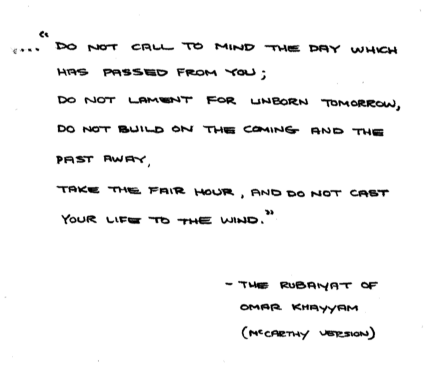 "
"... DO NOT CALL TO MIND THE DAY WHICH
HAS PASSED FROM YOU;
DO NOT LAMENT FOR UNBORN TOMORROW,
DO NOT BUILD ON THE COMING AND THE
PAST AWAY,
TAKE THE FAIR HOUR, AND DO NOT CAST
YOUR LIFE TO THE WIND."
- THE RUBAIYAT OF
OMAR KHAYYAM
(McCARTHY VERSION)